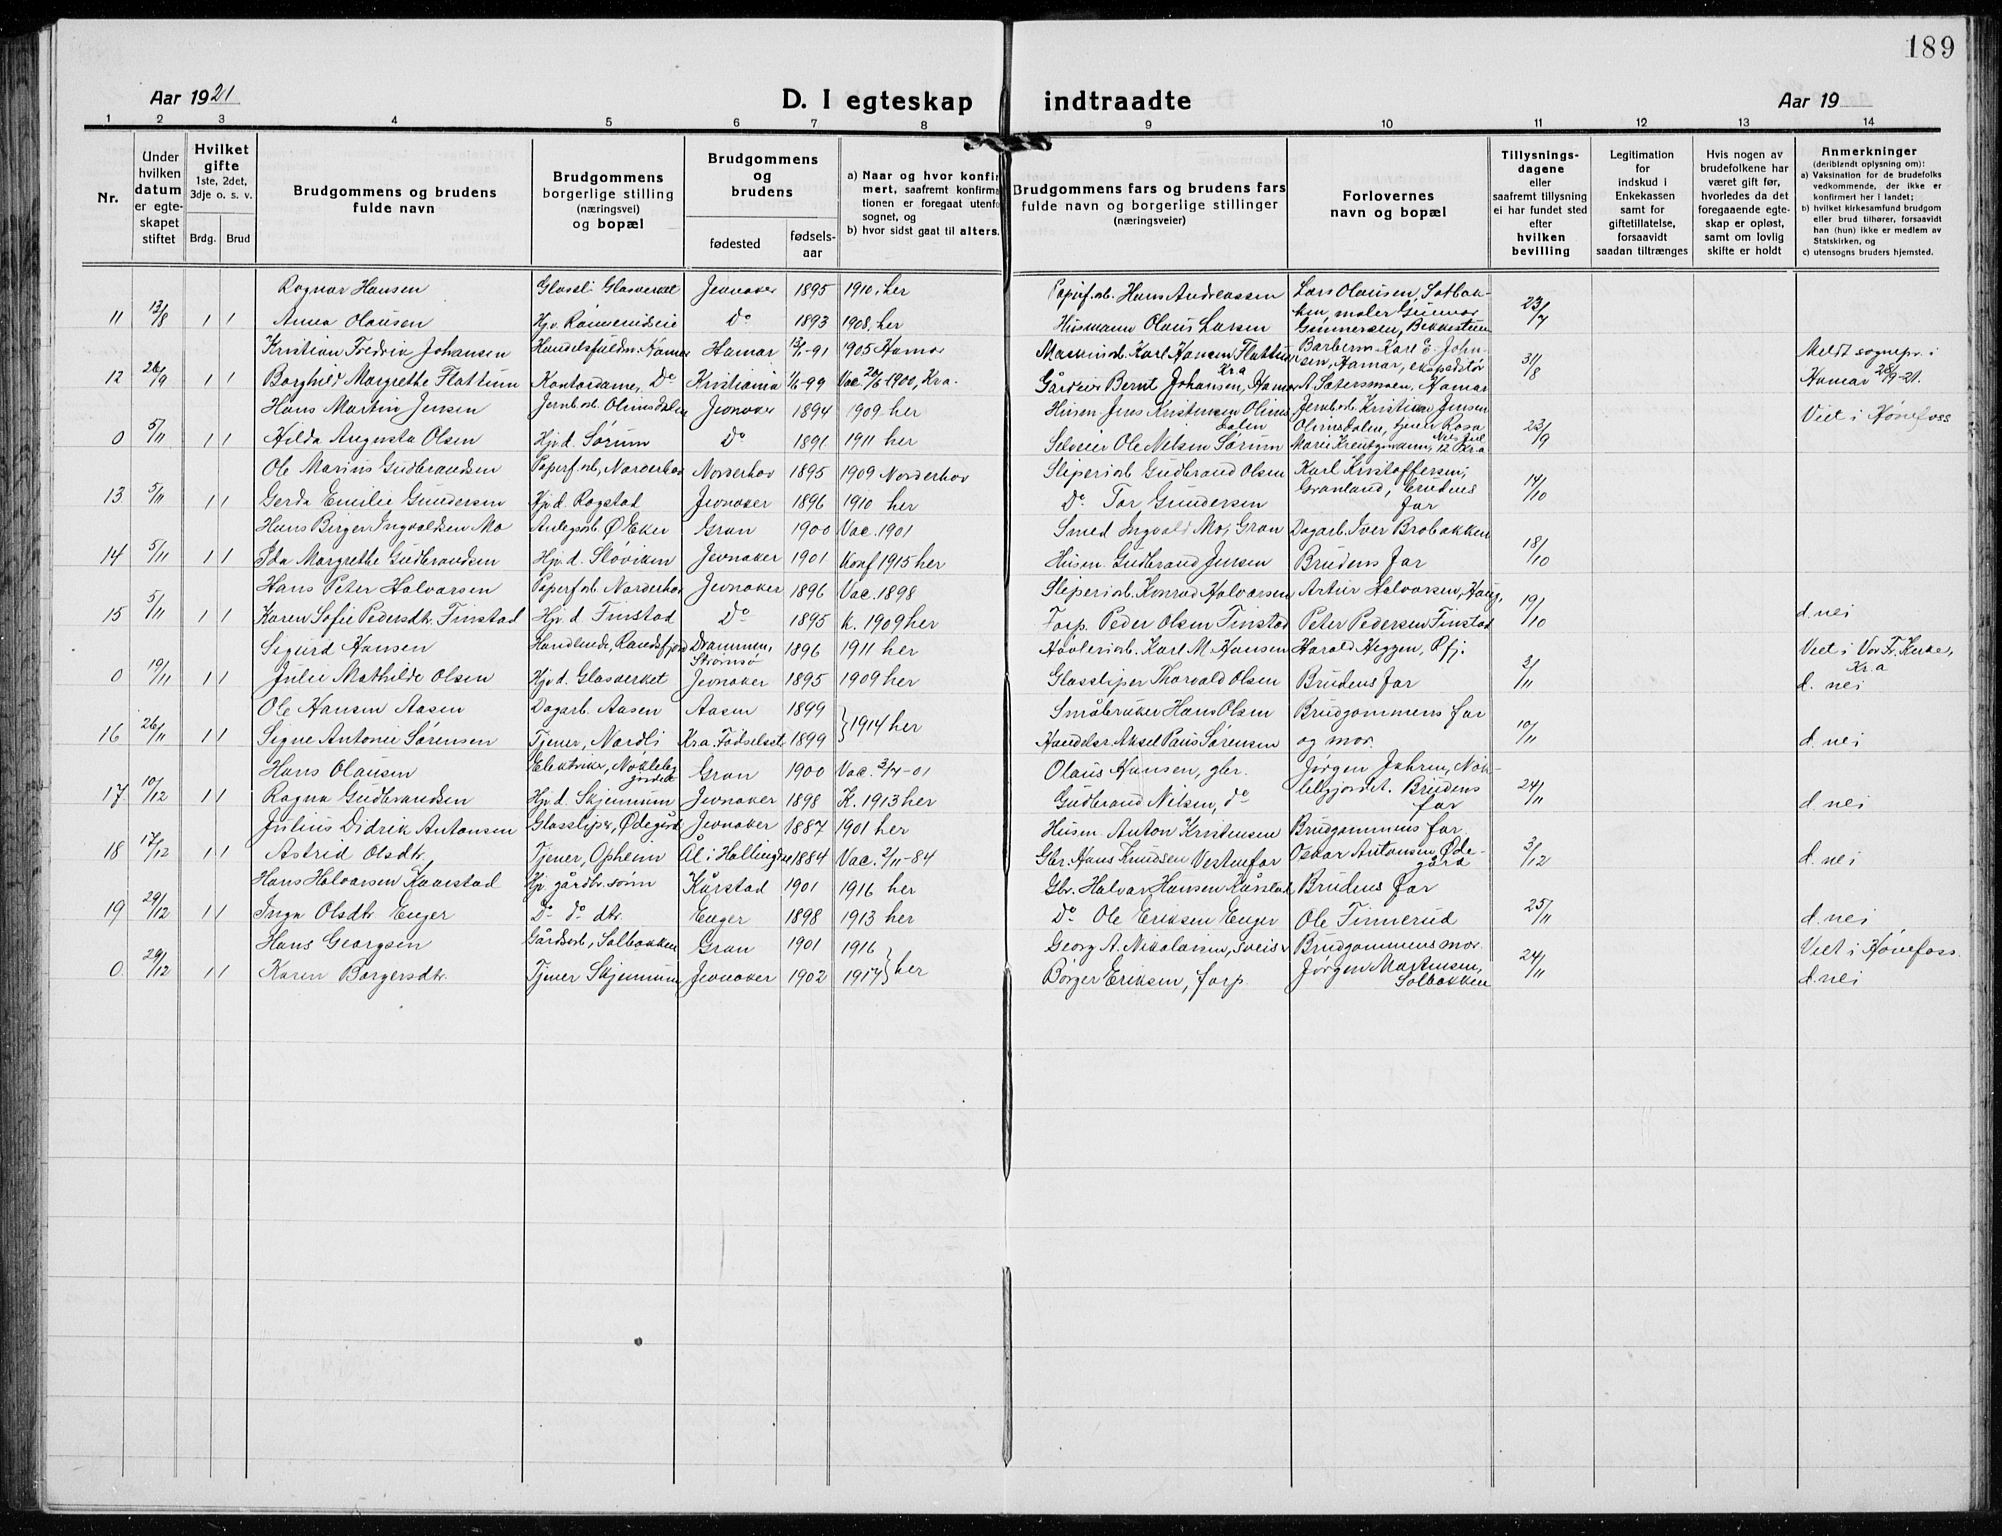 189
Aar 1921
D. I egteskap indtraadte
Aar 19
1 2 3 4 5 6 7 8 9 10 11 12 13 14
Nr.
Under hvilken datum er egteskapet stiftet
Hvilket gifte 1ste, 2det, 3dje o. s. v.
Brdg. Brud
Brudgommens og brudens fulde navn
Brudgommens borgerlige stilling (næringsvei) og bopæl
Brudgommens og brudens
fødested
fødselsaar
a) Naar og hvor konfirmert, saafremt konfirmationen er foregaat utenfor sognet, og
b) hvor sidst gaat til alters.
Brudgommens fars og brudens fars fulde navn og borgerlige stillinger (næringsveier)
Forlovernes navn og bopæl
Tillysningsdagene eller saafremt tillysning ei har fundet sted efter hvilken bevilling
Legitimation for indskud i Enkekassen samt for giftetillatelse, forsaavidt saadan tiltrænges
Hvis nogen av brudefolkene har været gift før, hvorledes da det foregaaende egteskap er opløst, samt om lovlig skifte er holdt
Anmerkninger
(deriblandt oplysning om):
a) Vaksination for de brudefolks vedkommende, der ikke er konfirmert her i landet;
b) hvilket kirkesamfund brudgom eller brud tilhører, forsaavidt han (hun) ikke er medlem av Statskirken, og
c) utensogns bruders hjemsted.
Ragnar Hansen Glassli Glasverket Jevnaker 1895 1910, her Papirf.arb. Hans Andreassen Lars Olausen, Solbak-
11 13/8 1 1 Anna Olausen Hj.v. D° 1893 1908, her Husmann Olaus Larsen ken, maler Gunnar 23/7
Gunnersen, Bekkestuen
Kristian Fredrik Johansen Handelsfuldm. Hamar Hamar 1905 Hamar Maskinarb. Karl Hansen Flattum Kr.a Barberm. Karl E. John- Meldt sognepr. i
12 26/9 1 1 Borghild Margrethe Flattum Kontordame, D° Kristiania 1/6-99 Vac. 20/6 1900, Kra. Gårdeier Bernt Johansen, Hamar sen, Hamar, ekspeditør 31/8 Hamar 28/9-21.
A. Sætersmoen, Hamar
Hans Martin Jensen Jernb.arb. Olimsdalen Jevnaker 1894 1909 her Husm. Jens Kristensen Olimsdalen Jernb.arb. Kristian Jensen Viet i Hønefoss
0 5/11 1 1 Hilda Augusta Olsen Hj.d. Sørum D° 1891 1911 her Selveier Ole Nilsen Sørum Olimsdalen, tjener Rosa 23/9
Ole Marius Gudbrandsen Papirf.arb. Norderhov Norderhov 1895 1909 Norderhov Sliperiarb. Gudbrand Olsen Karl Kristoffersen,
13 5/11 1 1 Gerda Emilie Gundersen Hj.d. Rogstad Jevnaker 1896 1910 her D° Tor Gundersen Granland, Brudens far 14/10
Hans Birger Ingvaldsen Mo Anlegsarb. Ø. Eker Gran 1900 Vac. 1901 Smed Ingvald Mo, Gran Dagarb. Iver Brobakken
14 5/11 1 1 Ida Margrethe Gudbrandsen Hj.d. Sløviken Jevnaker 1901 Konf 1915 her Husm. Gudbrand Jensen Brudens far 18/10
Hans Peter Halvorsen Papirf.arb. Norderhov Jevnaker 1896 Vac. 1898 Sliperiarb. Konrad Halvorsen Artur Halvorsen, Haug,
15 5/11 1 1 Karen Sofie Pedersdtr. Tinstad Hj.d. Tinstad D° 1895 K. 1909 her Forp. Peder Olsen Tinstad Peter Pedersen Tinstad 19/10 d. nei
Sigurd Hansen Handlende, Randsfjord Drammen, Strømsø 1896 1911 her Høvleriarb. Karl M. Hansen Harald Heggen, Rfj. Viet i Vor Fr. Kirke, Kr.a
0 19/11 1 1 Julie Mathilde Olsen Hj.d. Glasverket Jevnaker 1895 1909 her Glassliper Thorvald Olsen Brudens far 3/11 d. nei
Ole Hansen Aasen Dagarb. Aasen Aasen 1899 } 1914 her Småbruker Hans Olsen Brudgommens far
16 26/11 1 1 Signe Antonie Sørensen Tjener, Nordli Kra. Fødselsst. 1899 Handelsr. Aksel Paus Sørensen og mor. 10/11 d. nei
Hans Olausen Elektriker, Nøklebygjordet Gran 1900 Vac. 3/7-01 Olaus Hansen, gbr. Jørgen Jahren, Nøk-
17 10/12 1 1 Ragna Gudbrandsen Hj.d. Skjennum Jevnaker 1898 K. 1913 her Gudbrand Nilsen, d° lebygjordet. Brudens far 24/11 d. nei
Julius Didrik Antonsen Glassliper, Ødegård Jevnaker 1887 1901 her Husm. Anton Kristensen Brudgommens far
18 17/12 1 1 Astrid Olsdtr. Tjener, Opheim Ål i Hallingdal 1884 Vac. 2/11-84 Gbr. Hans Knudsen Vestenfor Oskar Antonsen, Ødegård 3/12 d. nei
Hans Halvorsen Kaarstad Hj. gårdbr. sønn Kårstad 1901 1916 her Gbr. Halvor Hansen Kårstad Brudens far
19 29/12 1 1 Inga Olsdtr. Enger D° d° dtr. Enger 1898 1913 her D° Ole Eriksen Enger Ole Tinnerud 25/11 d. nei
Hans Georgsen Gårdsarb., Solbakken Gran 1901 1916 } her Georg A. Nikolaisen, sveiser Brudgommens mor. Viet i Hønefoss.
0 29/12 1 1 Karen Borgersdtr. Tjener Skjennum Jevnaker 1902 1917 Børger Eriksen, forp. Jørgen Martinsen, Solbakken 24/11 d. nei